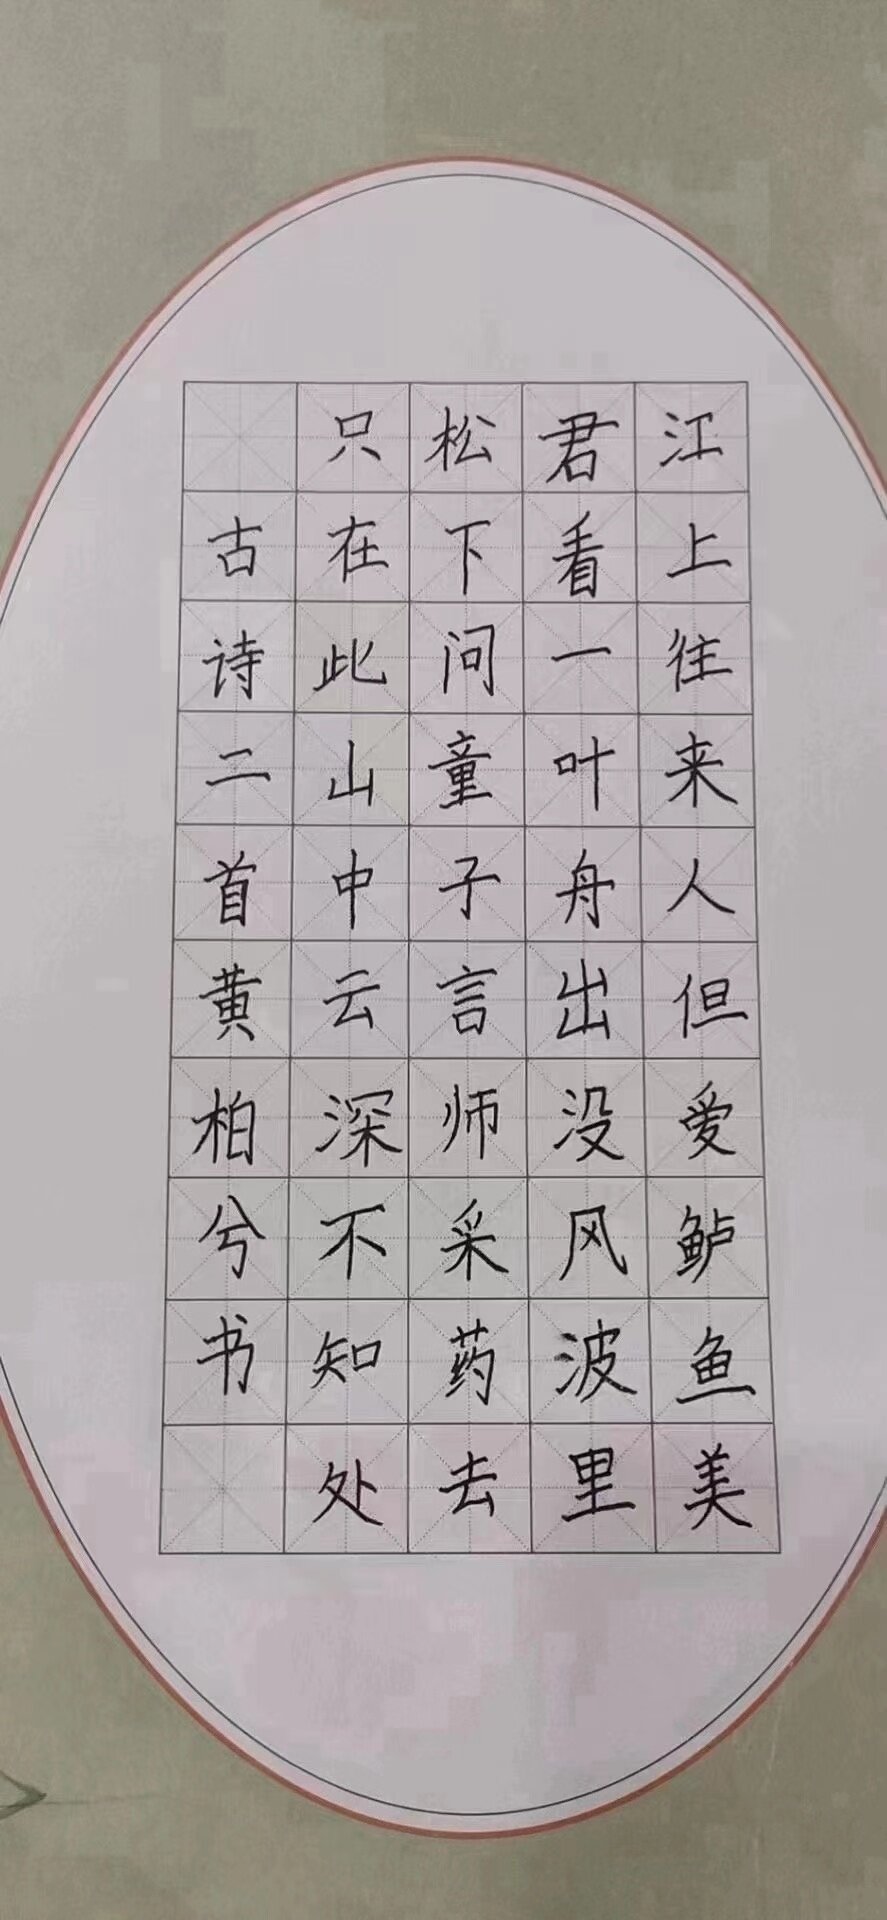 江上往来人但爱鲈鱼美
君看一叶舟出没风波里
松下问童子言师采药去
只在此山中云深不知处
古诗二首黄柏兮书